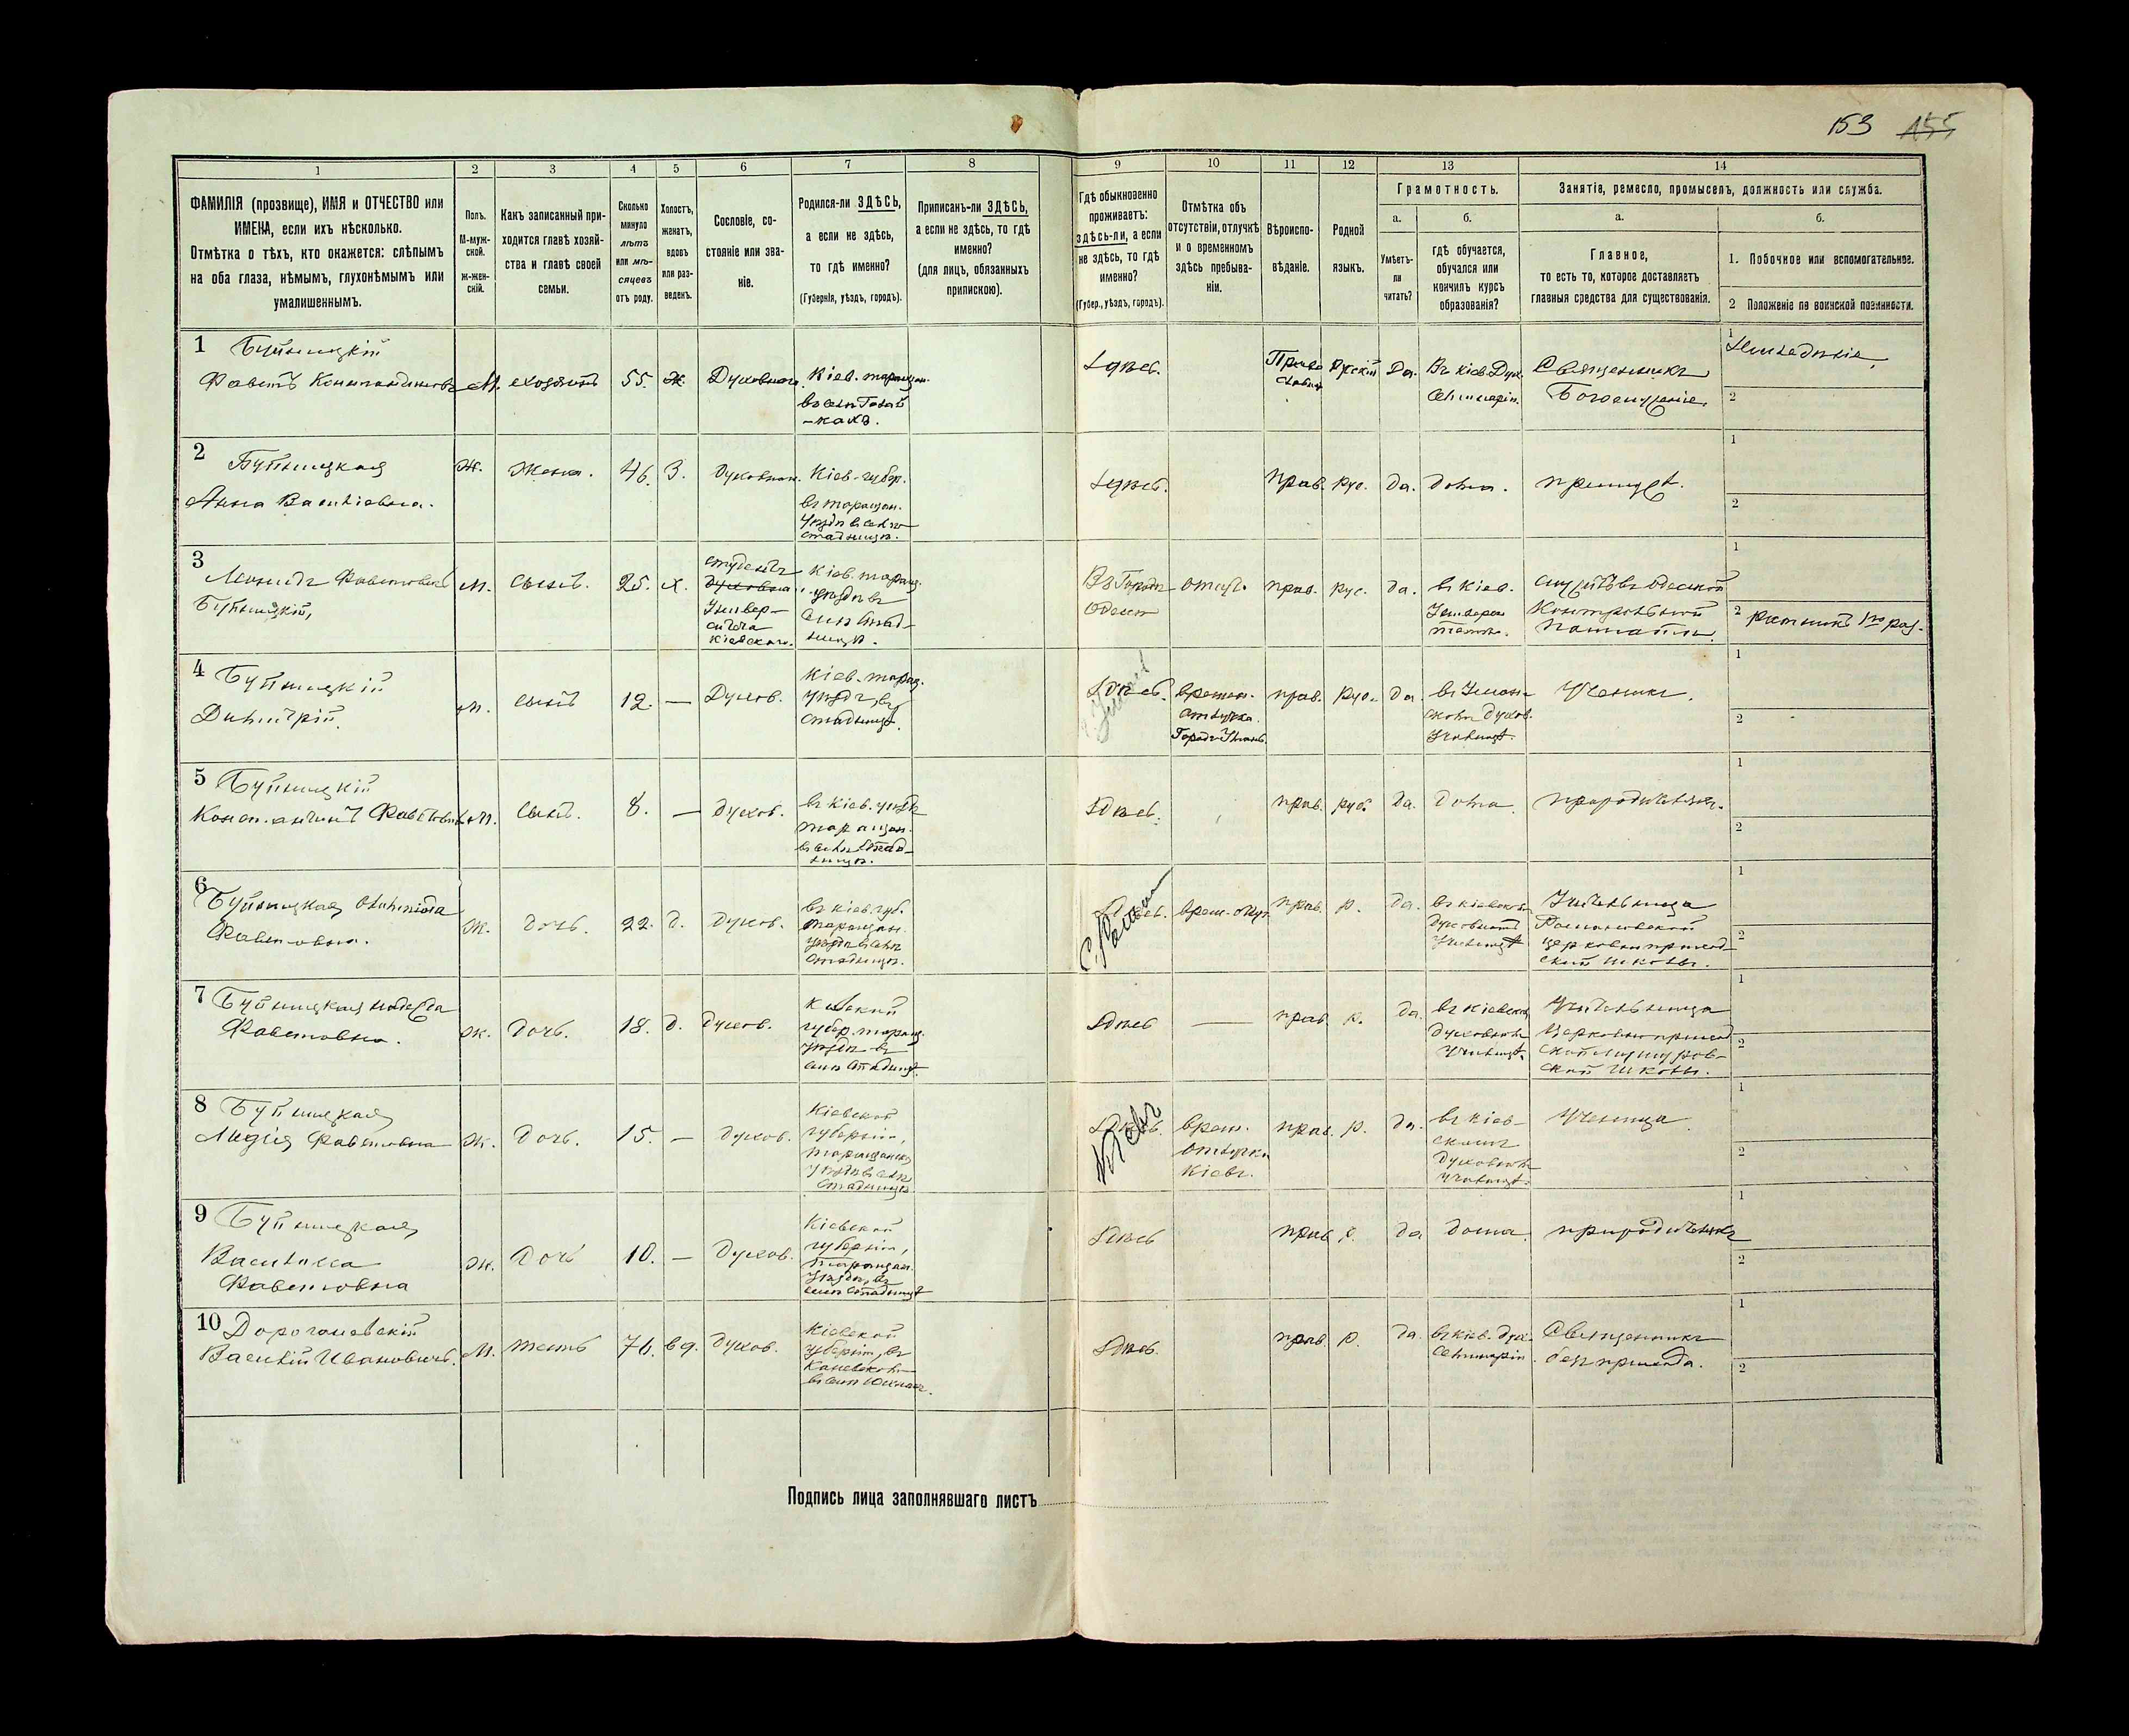 153 155
1 2 3 4 5 6 7 8 9 10 11 12 13 14
ФАМИЛІЯ (прозвище), ИМЯ и ОТЧЕСТВО или
ИМЕНА, если ихъ нѣсколько.
Отмѣтка о тѣхъ, кто окажется: слѣпымъ
на оба глаза, нѣмымъ, глухонѣмымъ или
умалишеннымъ.
Полъ.
М-муж-
ской.
Ж-жен-
скій.
Какъ записанный при-
ходится главѣ хозяй-
ства и главѣ своей
семьи.
Сколько
минуло
лѣтъ
или мѣ-
сяцевъ
отъ роду.
Холостъ,
женатъ,
вдовъ
или раз-
веденъ.
Сословіе, со-
стояніе или зва-
ніе.
Родился-ли ЗДѢСЬ,
а если не здѣсь,
то гдѣ именно?
(Губернія, уѣздъ, городъ).
Приписанъ-ли ЗДѢСЬ,
а если не здѣсь, то гдѣ
именно?
(для лицъ, обязанныхъ
припискою).
Гдѣ обыкновенно
проживаетъ:
здѣсь-ли, а если
не здѣсь, то гдѣ
именно?
(Губер., уѣздъ, городъ).
Отмѣтка объ
отсутствіи, отлучкѣ
и о временномъ
здѣсь пребыва-
ніи.
Вѣроиспо-
вѣданіе.
Родной
языкъ.
Грамотность.
а.
Умѣетъ-
ли
читать?
б.
гдѣ обучается,
обучался или
кончилъ курсъ
образованія?
Занятіе, ремесло, промыселъ, должность или служба.
а.
Главное,
то есть то, которое доставляетъ
главныя средства для существованія.
б.
1. Побочное или вспомогательное.
2 Положеніе по воинской повинности.
1 Буйницкій
Фавстъ Константиновъ М. хозяинъ 55. Ж. Духовнаго Кіев. таращан.
въ селѣ
-кахъ.
Здѣсь.
Право
славн.
Русскій Да. Въ Кіев. Дух.
Семинаріи.
Священникъ
Богослуженіе.
1 Земледѣліе
2
2 Буйницкая
Анна Васильевна.
Ж. Жена. 46. З. Духовнаго. Кіев. губер.
въ таращан.
уѣздѣ въ селѣ
Стадницѣ.
Здѣсь. прав. рус. да. дома. при мужѣ.
1
2
3 Леонидъ Фавстовичъ
Буйницкій,
М. сынъ. 25. х. студентъ
духовна
Универ-
ситета
Кіевскаго.
Кіев. таращ.
уѣздѣ въ
селѣ Стад-
ницѣ.
Въ Городѣ
Одессѣ
отлуч. прав. рус. да. въ Кіев.
Универси
тетѣ.
служитъ въ Одесской
Контрольной
палатѣ.
1
2 ратникъ 1го раз.
4 Буйницкій
Димитрій.
м. сынъ 12. — Духов. Кіев. таращ.
уѣздѣ, въ
Стадницѣ.
Здѣсь. Умань времен.
отлучка.
Городъ Умань.
прав. рус. да. въ Уман-
скомъ духов.
Училищѣ.
Ученикъ.
1
2
5 Буйницкій
Константинъ Фавстовичъ м. сынъ. 8. — духов. въ Кіев. уѣздѣ
таращан.
въ селѣ Стад-
ницѣ.
Здѣсь. прав. рус. да. дома при родителяхъ.
1
2
6 Буйницкая Олимпіада
Фавстовна.
ж. дочь. 22. д. духов. въ Кіев. губ.
таращан.
уѣздѣ въ селѣ
Стадницѣ.
Здѣсь. врем. отлуч. прав. р. да. въ Кіевскомъ
духовномъ
училищѣ
Учительница
Романовской
церковно приход-
ской школы.
1
2
7 Буйницкая Надежда
Фавстовна.
ж. дочь. 18. д. духов. Кіевской
губер. таращ.
уѣздѣ въ
селѣ Стадницѣ.
Здѣсь — прав. р. да. въ Кіевскомъ
духовномъ
училищѣ.
Учительница
Церковно приход
ской
ской школы.
1
2
8 Буйницкая
Лидія Фавстовна
ж. дочь. 15. — духов. Кіевской
губерніи,
таращанск.
уѣздѣ въ селѣ
Стадницѣ.
Здѣсь. Кіевъ врем.
отлучка
Кіевъ.
прав. р. да. въ Кіев-
скомъ
духовномъ
училищѣ.
ученица
1
2
9 Буйницкая
Василисса
Фавстовна
ж. дочь 10. — духов. Кіевской
губерніи,
таращан.
уѣздѣ, въ
селѣ Стадницѣ
Здѣсь прав. р. да дома. при родителяхъ
1
2
10
Василій Ивановичъ. м. тесть 76. вд. духов. Кіевской
губерніи, въ
Каневскомъ
въ селѣ
Здѣсь. прав. р. да. въ Кіев. дух.
Семинаріи.
Священникъ
безъ прихода.
1
2
Подпись лица заполнявшаго листъ